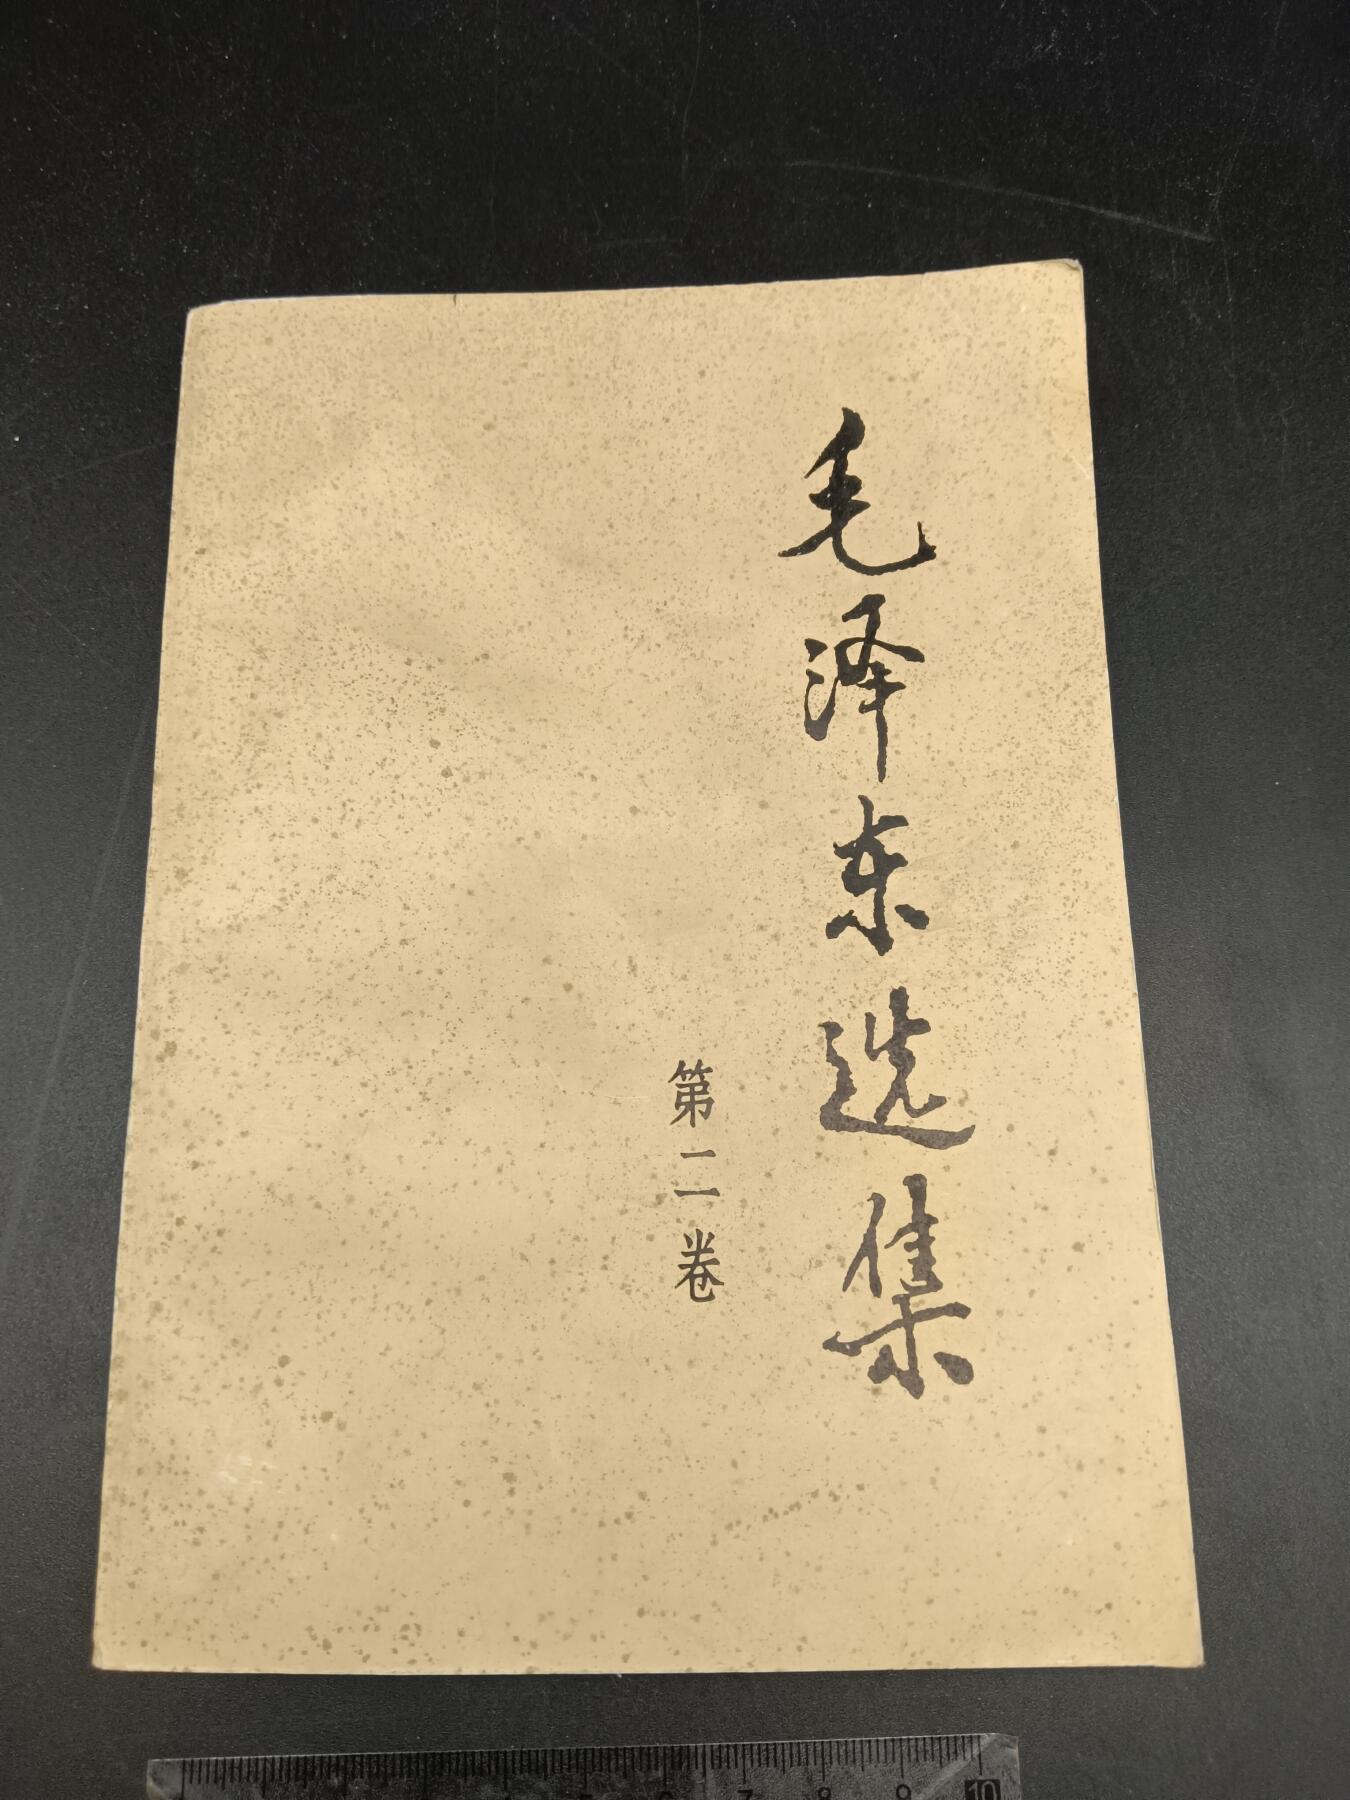 毛泽东选集
第二卷
7 8 9 10